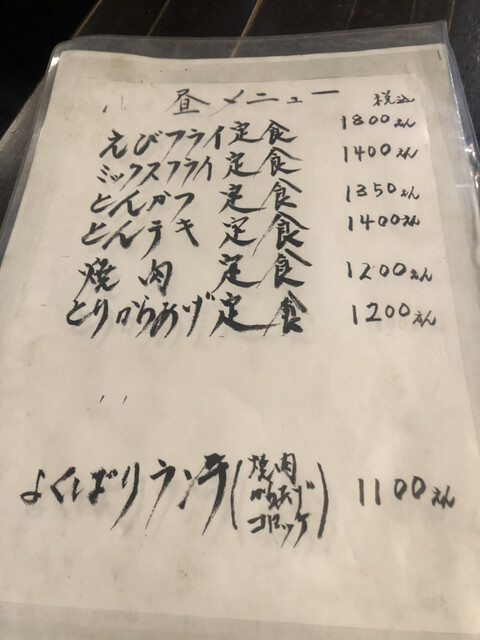 昼メニュー 税込
えびフライ定食 1800えん
ミックスフライ定食 1400えん
とんかつ定食 1350えん
とんテキ定食 1400えん
焼肉定食 1200えん
とりからあげ定食 1200えん
よくばりランチ(焼肉 からあげ コロッケ) 1100えん